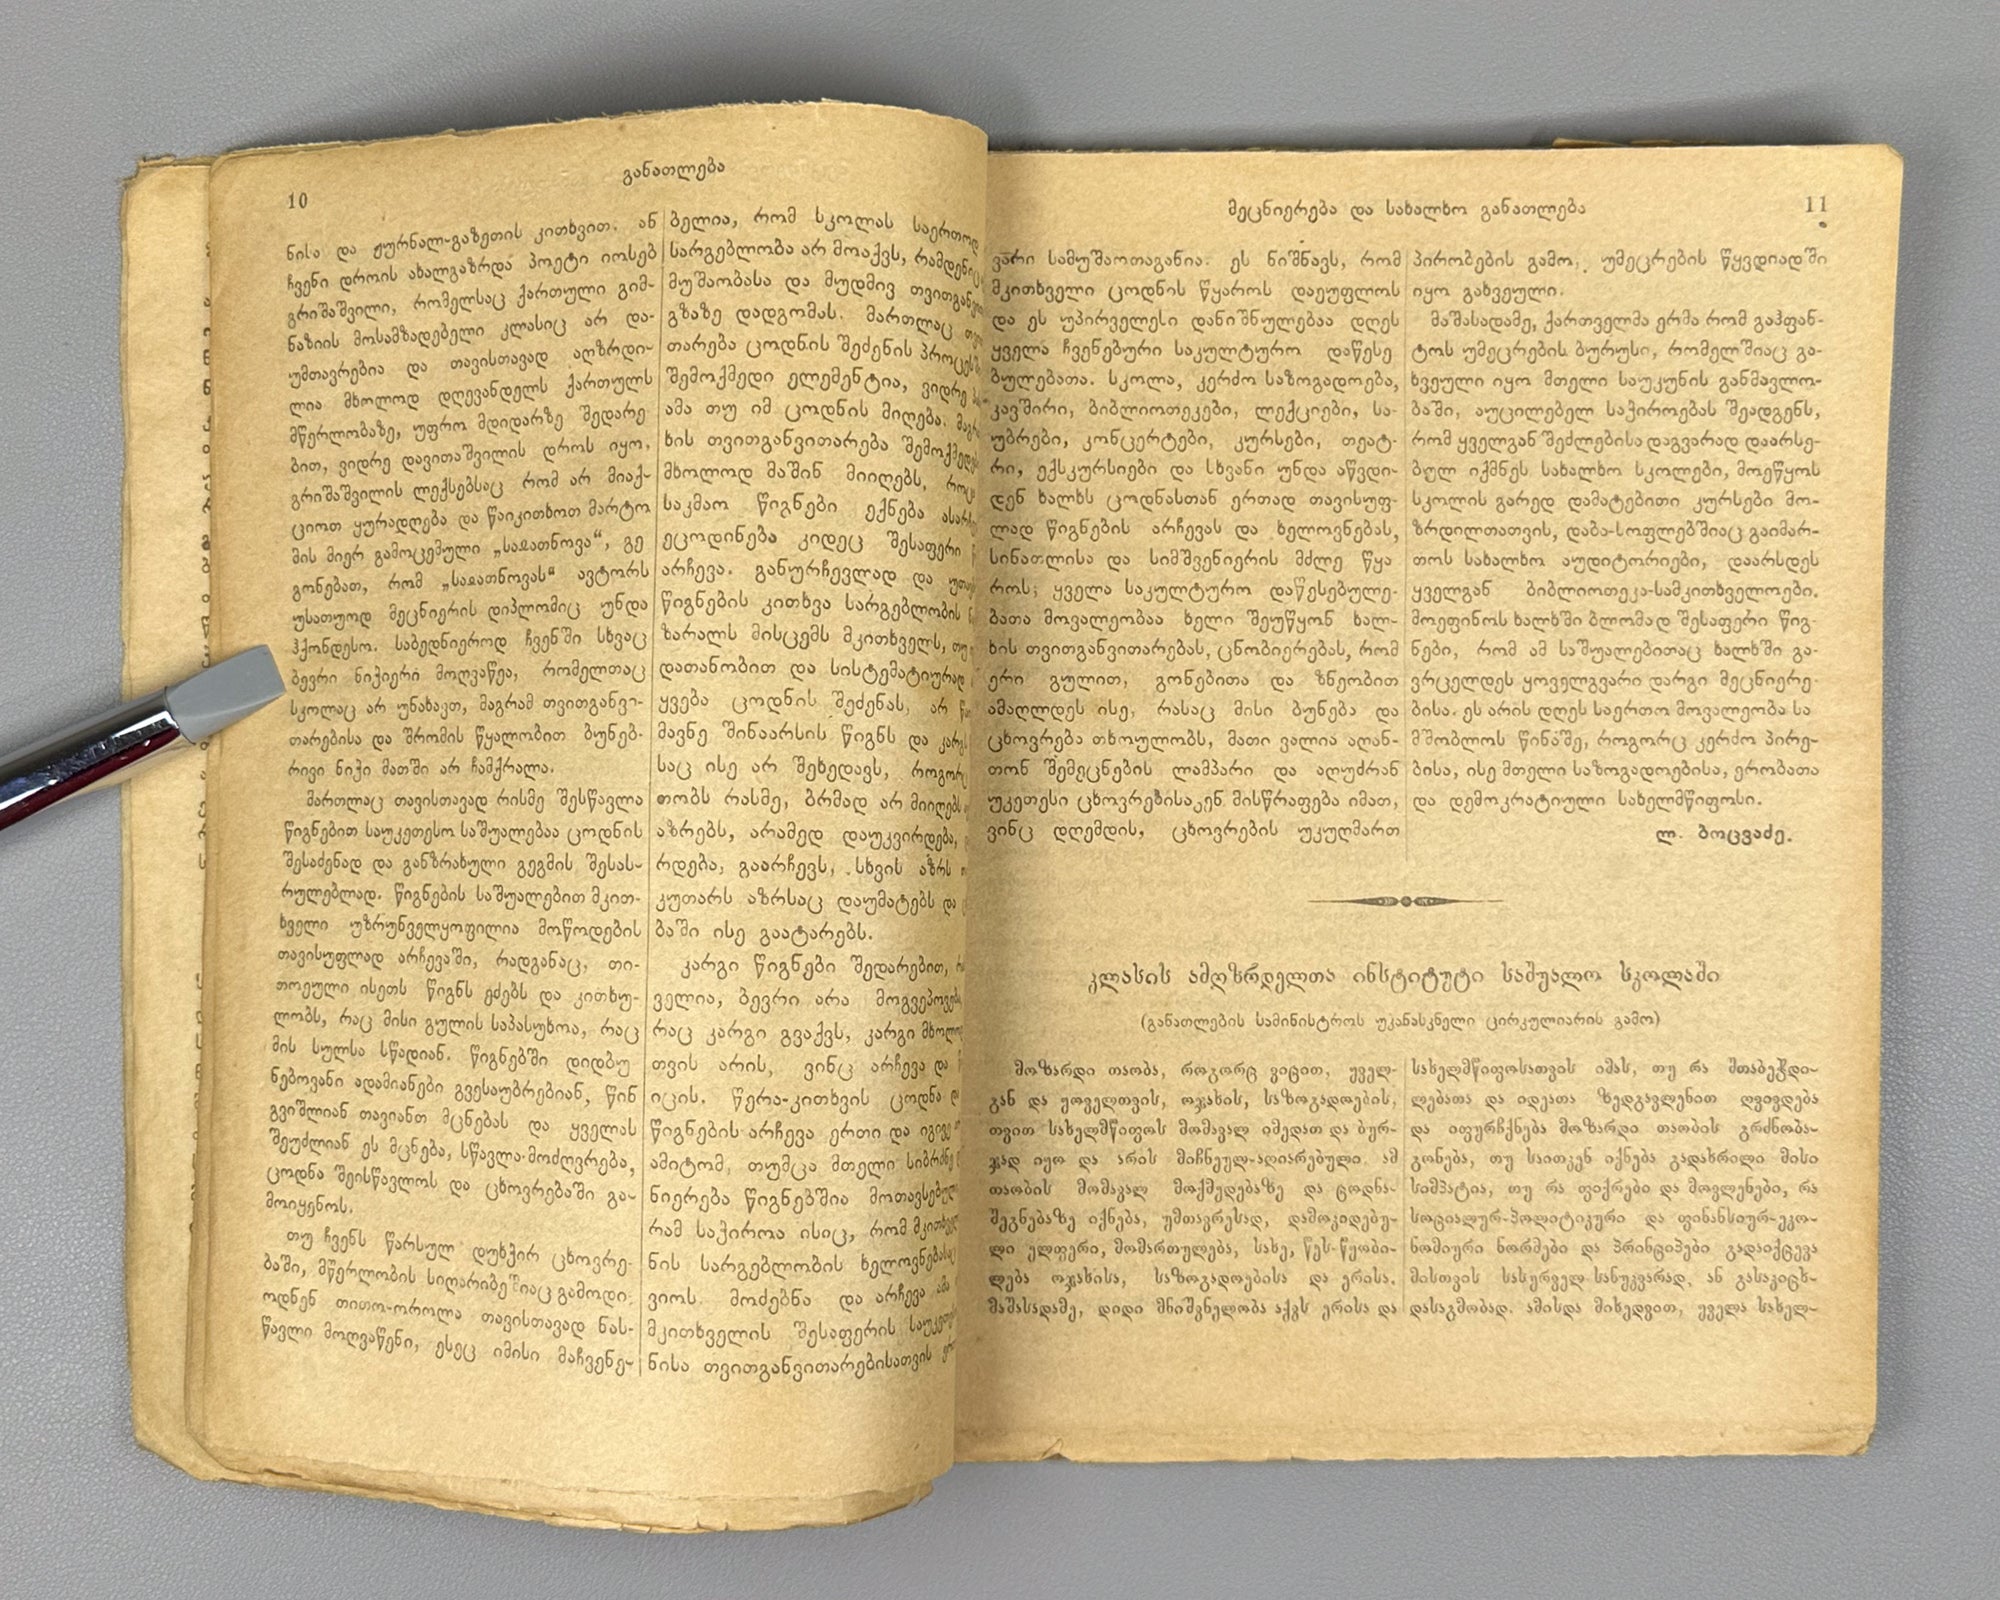 10
განათლება
ნისა და ჟურნალ-გაზეთის კითხვით. ან
ჩვენი დროის ახალგაზრდა პოეტი იოსებ
გრიშაშვილი, რომელსაც ქართული გიმ-
ნაზიის მოსამზადებელი კლასიც არ და-
უმთავრებია და თავისთავად აღზრდი-
ლია მხოლოდ დღევანდელს ქართულს
მწერლობაზე, უფრო მდიდარზე შედარე
ბით, ვიდრე დავითაშვილის დროს იყო.
გრიშაშვილის ლექსებსაც რომ არ მიაქ-
ციოთ ყურადღება და წაიკითხოთ მარტო
მის მიერ გამოცემული „საათნოვა“, გე
გონებათ, რომ „საათნოვას“ ავტორს
უსათუოდ მეცნიერის დიპლომიც უნდა
ჰქონდესო. საბედნიეროდ ჩვენში სხვაც
ბევრი ნიჭიერი მოღვაწეა, რომელთაც
სკოლაც არ უნახავთ, მაგრამ თვითგანვი-
თარებისა და შრომის წყალობით ბუნებ-
რივი ნიჭი მათში არ ჩამქრალა.
მართლაც თავისთავად რისმე შესწავლა
წიგნებით საუკეთესო საშუალებაა ცოდნის
შესაძენად და განზრახული გეგმის შესას-
რულებლად. წიგნების საშუალებით მკით-
ხველი უზრუნველყოფილია მოწოდების
თავისუფლად არჩევაში, რადგანაც, თი-
თოეული ისეთს წიგნს ეძებს და კითხუ-
ლობს, რაც მისი გულის საპასუხოა, რაც
მის სულსა სწადიან. წიგნებში დიდბუ
ნებოვანი ადამიანები გვესაუბრებიან, წინ
გვიშლიან თავიანთ მცნებას და ყველას
შეუძლიან ეს მცნება, სწავლა-მოძღვრება,
ცოდნა შეისწავლოს და ცხოვრებაში გა-
მოიყენოს.
თუ ჩვენს წარსულ დუხჭირ ცხოვრე-
ბაში, მწერლობის სიღარიბეშიაც გამოდი
ოდნენ თითო-ოროლა თავისთავად ნას-
წავლი მოღვაწენი, ესეც იმისი მაჩვენე-
ბელია, რომ სკოლას საერთოდ
სარგებლობა არ მოაქვს,
მუშაობასა და მუდმივ
გზაზე დადგომას. მართლაც
თარება ცოდნის შეძენის
შემოქმედი ელემენტია, ვიდრე
ამა თუ იმ ცოდნის მიღება.
ხის თვითგანვითარება
მხოლოდ მაშინ მიიღებს,
საკმაო წიგნები ექნება
ეცოდინება კიდეც შესაფერი
არჩევა. განურჩევლად და
წიგნების კითხვა სარგებლობის
ზარალს მისცემს მკითხველს, თუ
დათანობით და სისტემატიურად
ყვება ცოდნის შეძენას, არ
მავნე შინაარსის წიგნს და
საც ისე არ შეხედავს, როგორც
თობს რასმე, ბრმად არ მიიღებს
აზრებს, არამედ დაუკვირდება,
რდება, გაარჩევს, სხვის აზრს
კუთარს აზრსაც დაუმატებს და
ბაში ისე გაატარებს.
კარგი წიგნები შედარებით,
ველია, ბევრი არა
რაც კარგი გვაქვს, კარგი
თვის არის, ვინც არჩევა და
იცის. წერა-კითხვის ცოდნა
წიგნების არჩევა ერთი და იგივე
ამიტომ, თუმცა მთელი სიბრძნე
ნიერება წიგნებშია
რამ საჭიროა ისიც, რომ
ნის სარგებლობის ხელოვნებასაც
ვიოს. მოძებნა და არჩევა
მკითხველის შესაფერის
ნისა თვითგანვითარებისათვის
მეცნიერება და სახალხო განათლება
11
ვარი სამუშაოთაგანია. ეს ნიშნავს, რომ
მკითხველი ცოდნის წყაროს დაეუფლოს
და ეს უპირველესი დანიშნულებაა დღეს
ყველა ჩვენებური საკულტურო დაწესე
ბულებათა. სკოლა, კერძო საზოგადოება,
კავშირი, ბიბლიოთეკები, ლექციები, სა-
უბრები, კონცერტები, კურსები, თეატ-
რი, ექსკურსიები და სხვანი უნდა აწვდი-
დენ ხალხს ცოდნასთან ერთად თავისუფ-
ლად წიგნების არჩევას და ხელოვნებას,
სინათლისა და სიმშვენიერის მძლე წყა
როს; ყველა საკულტურო დაწესებულე-
ბათა მოვალეობაა ხელი შეუწყონ ხალ-
ხის თვითგანვითარებას, ცნობიერებას, რომ
ერი გულით, გონებითა და ზნეობით
ამაღლდეს ისე, რასაც მისი ბუნება და
ცხოვრება თხოულობს, მათი ვალია აღან-
თონ შემეცნების ლამპარი და აღუძრან
უკეთესი ცხოვრებისაკენ მისწრაფება იმათ,
ვინც დღემდის, ცხოვრების უკუღმართ
პირობების გამო, უმეცრების წყვდიადში
იყო გახვეული.
მაშასადამე, ქართველმა ერმა რომ გაჰფან-
ტოს უმეცრების ბურუსი, რომელშიაც გა-
ხვეული იყო მთელი საუკუნის განმავლო-
ბაში, აუცილებელ საჭიროებას შეადგენს,
რომ ყველგან შეძლებისა დაგვარად დაარსე-
ბულ იქმნეს სახალხო სკოლები, მოეწყოს
სკოლის გარედ დამატებითი კურსები მო-
ზრდილთათვის, დაბა-სოფლებშიაც გაიმარ-
თოს სახალხო აუდიტორიები, დაარსდეს
ყველგან ბიბლიოთეკა-სამკითხველოები.
მოეფინოს ხალხში ბლომად შესაფერი წიგ-
ნები, რომ ამ საშუალებითაც ხალხში გა-
ვრცელდეს ყოველგვარი დარგი მეცნიერე-
ბისა. ეს არის დღეს საერთო მოვალეობა სა
მშობლოს წინაშე, როგორც კერძო პირე-
ბისა, ისე მთელი საზოგადოებისა, ერობათა
და დემოკრატიული სახელმწიფოსი.
ლ. ბოცვაძე.
კლასის ამღზრდელთა ინსტიტუტი საშუალო სკოლაში
(განათლების სამინისტროს უკანასკნელი ცირკულიარის გამო)
მოზარდი თაობა, როგორც ვიცით, ყველ-
გან და ყოველთვის, ოჯახის, საზოგადოების,
თვით სახელმწიფოს მომავალ იმედათ და ბურ-
ჯად იყო და არის მიჩნეულ-აღიარებული. ამ
თაობის მომავალ მოქმედებაზე და ცოდნა-
შეგნებაზე იქნება, უმთავრესად, დამოკიდებუ-
ლი ელფერი, მომართულება, სახე, წეს-წყობი-
ლება ოჯახისა, საზოგადოებისა და ერისა.
მაშასადამე, დიდი მნიშვნელობა აქვს ერისა და
სახელმწიფოსათვის იმას, თუ რა შთაბეჭდი-
ლებათა და იდეათა ზედგავლენით ღვივდება
და იფურჩქნება მოზარდი თაობის გრძნობა-
გონება, თუ საითკენ იქნება გადახრილი მისი
სიმპატია, თუ რა ფიქრები და მოვლენები, რა
სოციალურ-პოლიტიკური და ფინანსიურ-ეკო-
ნომიური ნორმები და პრინციპები გადაიქცევა
მისთვის სასურველ-სანუკვარად, ან გასაკიცხ-
დასაგმობად. ამისდა მიხედვით, ყველა სახელ-